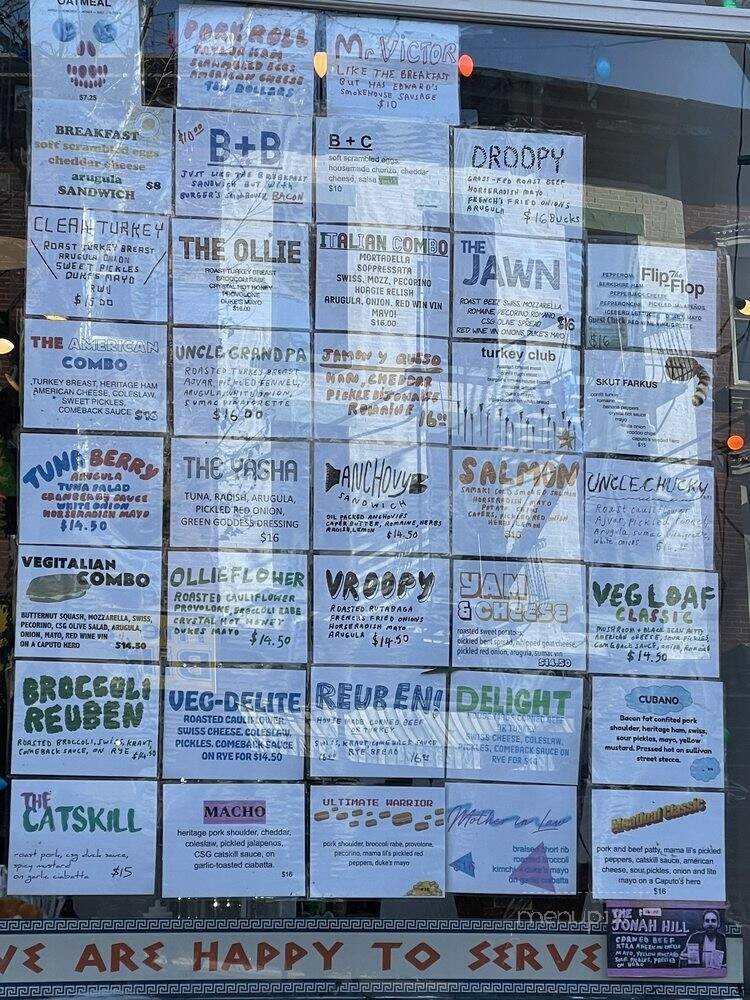 OATMEAL
$7.25
PORK ROLL
TAYLOR HAM
SCRAMBLED EGGS
AMERICAN CHEESE
TEN DOLLARS
Mr VICTOR
LIKE THE BREAKFAST
BUT HAS EDWARD'S
SMOKEHOUSE SAUSAGE
$10
BREAKFAST
soft scrambled eggs
cheddar cheese
arugula
SANDWICH $8
$10.00
B+B
JUST LIKE THE BREAKFAST
SANDWICH BUT WITH
BURGER'S SMOKEHOUSE BACON
B + C
soft scrambled eggs,
housemade chorizo, cheddar
cheese, salsa
$10
DROOPY
GRASS-FED ROAST BEEF
HORSERADISH MAYO
FRENCH'S FRIED ONIONS
ARUGULA $16 BUCKS
CLEAN TURKEY
ROAST TURKEY BREAST
ARUGULA ONION
SWEET PICKLES
DUKE'S MAYO
RWV
THE OLLIE
ROAST TURKEY BREAST
BROCCOLI RABE
CRYSTAL HOT HONEY
PROVOLONE
DUKE'S MAYO
$16.00
ITALIAN COMBO
MORTADELLA
SOPPRESSATA
SWISS, MOZZ, PECORINO
HOAGIE RELISH
ARUGULA, ONION, RED WIN VIN
MAYO!
$16.00
THE
JAWN
ROAST BEEF SWISS MOZZARELLA
ROMAINE PECORINO ROMANO
CSG OLIVE SPREAD $16
RED WINE VIN ONIONS, DUKE'S MAYO
The
Flip Flop
PEPPERONI
BERKSHIRE HAM
PEPPER JACK CHEESE
PEPPERONCINI PICKLED JALAPEÑOS
Guest Check
$16
THE AMERICAN
COMBO
TURKEY BREAST, HERITAGE HAM
AMERICAN CHEESE, COLESLAW,
SWEET PICKLES,
COMEBACK SAUCE $16
UNCLE GRANDPA
ROASTED TURKEY BREAST
AJVAR, PICKLED FENNEL,
ARUGULA, WHITE ONION,
SUMAC VINAIGRETTE
$16.00
JAMON Y QUESO
HAM, CHEDDAR
PICKLE DIJONAISE
ROMAINE 16.00
turkey club
SKUT FARKUS
confit turkey
romaine
banana peppers
crystal hot sauce
mayo
red onion
voodoo chips
caputo's seeded hero
$15
TUNA BERRY
ARUGULA
TUNA SALAD
CRANBERRY SAUCE
WHITE ONION
HORSERADISH MAYO
$14.50
THE YASHA
TUNA, RADISH, ARUGULA,
PICKLED RED ONION,
GREEN GODDESS DRESSING
$16
ANCHOVY
SANDWICH
OIL PACKED ANCHOVIES
CAPER BUTTER, ROMAINE, HERBS
RADISH, LEMON $14.50
SALMON
SAMAKI COLD SMOKED SALMON
HORSERADISH MAYO
POTATO CHIPS
CAPERS, PICKLED RED ONION
HERBS, LEMON
$16
UNCLE CHUCKY
Roast cauliflower
Ajvar, pickled fennel,
Arugula, sumac vinaigrette,
white onions
VEGITALIAN
COMBO
BUTTERNUT SQUASH, MOZZARELLA, SWISS,
PECORINO, CSG OLIVE SALAD, ARUGULA,
ONION, MAYO, RED WINE VIN
ON A CAPUTO HERO $14.50
OLLIEFLOWER
ROASTED CAULIFLOWER
PROVOLONE, BROCCOLI RABE
CRYSTAL HOT HONEY
DUKES MAYO $14.50
VROOPY
ROASTED RUTABAGA
FRENCHS FRIED ONIONS
HORSERADISH MAYO
ARUGULA $14.50
YAM
& CHEESE
roasted sweet potato
pickled beet spread, whipped goat cheese
pickled red onion, arugula, sumac vin
$14.50
VEG LOAF
CLASSIC
MUSHROOM + BLACK BEAN PATTY
AMERICAN CHEESE, SOUR PICKLES,
COMEBACK SAUCE, ONION, ROMAINE
$14.50
BROCCOLI
REUBEN
ROASTED BROCCOLI, SWISS, KRAUT,
COMEBACK SAUCE, ON RYE $14.50
VEG-DELITE
ROASTED CAULIFLOWER
SWISS CHEESE, COLESLAW,
PICKLES, COMEBACK SAUCE
ON RYE FOR $14.50
REUBEN!
HOUSE MADE CORNED BEEF
OR TURKEY
SWISS, KRAUT, COMEBACK SAUCE
RYE BREAD
DELIGHT
SWISS CHEESE, COLESLAW,
PICKLES, COMEBACK SAUCE ON
RYE FOR $16
CUBANO
Bacon fat confited pork
shoulder, heritage ham, swiss,
sour pickles, mayo, yellow
mustard. Pressed hot on sullivan
street stecca.
THE
CATSKILL
roast pork, csg duck sauce,
spicy mustard
on garlic ciabatta $15
MACHO
heritage pork shoulder, cheddar,
coleslaw, pickled jalapenos,
CSG catskill sauce, on
garlic-toasted ciabatta.
$16
ULTIMATE WARRIOR
pork shoulder, broccoli rabe, provolone,
pecorino, mama lil's pickled red
peppers, duke's mayo
Mother in Law
braised short rib
roasted broccoli
kimchi + duke's mayo
on garlic ciabatta
Meatloaf Classic
pork and beef patty, mama lil's pickled
peppers, catskill sauce, american
cheese, sour pickles, onion and lite
mayo on a Caputo's hero
$16
THE
JONAH HILL
CORNED BEEF
XTRA AMERICAN CHEESE
MAYO, YELLOW MUSTARD
SOUR PICKLES, PRESSED
ON HERO
menupi
WE ARE HAPPY TO SERVE